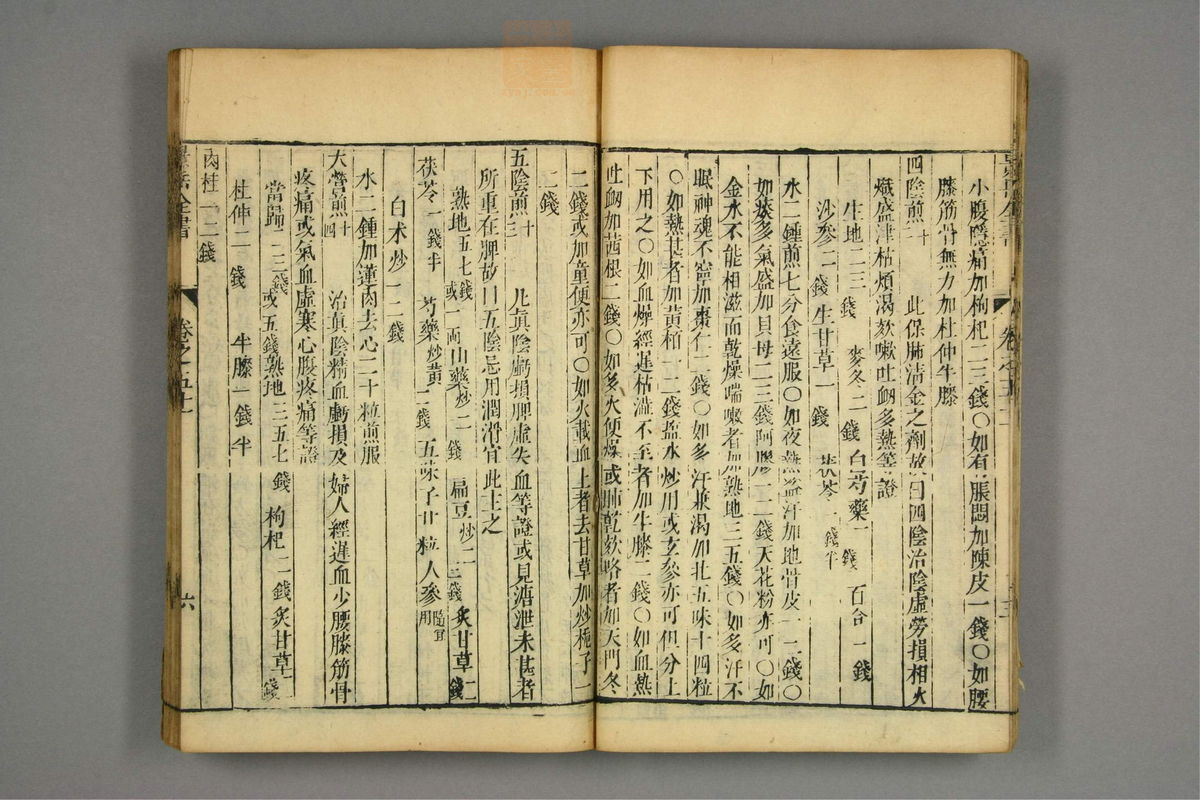 小腹隱痛加枸杞二三錢〇如有脹悶加陳皮一錢〇如腰
膝筋骨無力加杜仲牛膝
四陰煎十二 此保肺清金之劑故曰四陰治陰虛勞損相火
熾盛津枯煩渴欬嗽吐衂多熱等證
生地二三錢 麥冬二錢 白芍藥二錢 百合二錢
沙參二錢 生甘草一錢 茯苓一錢半
水二鍾煎七分食遠服〇如夜熱盜汗加地骨皮一二錢〇
如痰多氣盛加貝母二三錢阿膠一二錢天花粉亦可〇如
金水不能相滋而乾燥喘嗽者加熟地三五錢〇如多汗不
眠神魂不寧加棗仁二錢〇如多汗兼渴加北五味十四粒
〇如熱甚者加黃栢一二錢盐水炒用或玄參亦可但分上
下用之〇如血燥經遲枯澁不至者加牛膝二錢〇如血熱
吐衂加茜根二錢〇如多火便燥或肺乾欬咯者加天門冬
二錢或加童便亦可〇如火載血上者去甘草加炒梔子一
二錢
五陰煎十三 凡真陰虧損脾虛失血等證或見溏泄未甚者
所重在脾故曰五陰忌用潤滑宜此主之
熟地五七錢或一兩 山藥炒二錢 扁豆炒二三錢 炙甘草一二錢
茯苓一錢半 芍藥炒黃二錢 五味子廿粒 人參隨宜用
白术炒一二錢
水二鍾加蓮肉去心二十粒煎服
大營煎十四 治真陰精血虧損及婦人經遲血少腰膝筋骨
疼痛或氣血虛寒心腹疼痛等證
當歸二三錢或五錢 熟地三五七錢 枸杞二錢 炙甘草一二錢
杜仲二錢 牛膝一錢半
肉桂一二錢
卷之五十一
六